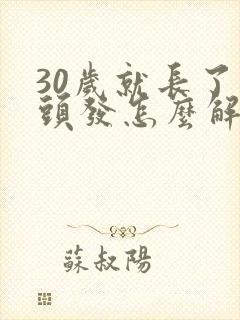 30歲就長了
頭發怎麼解
蘇叔陽